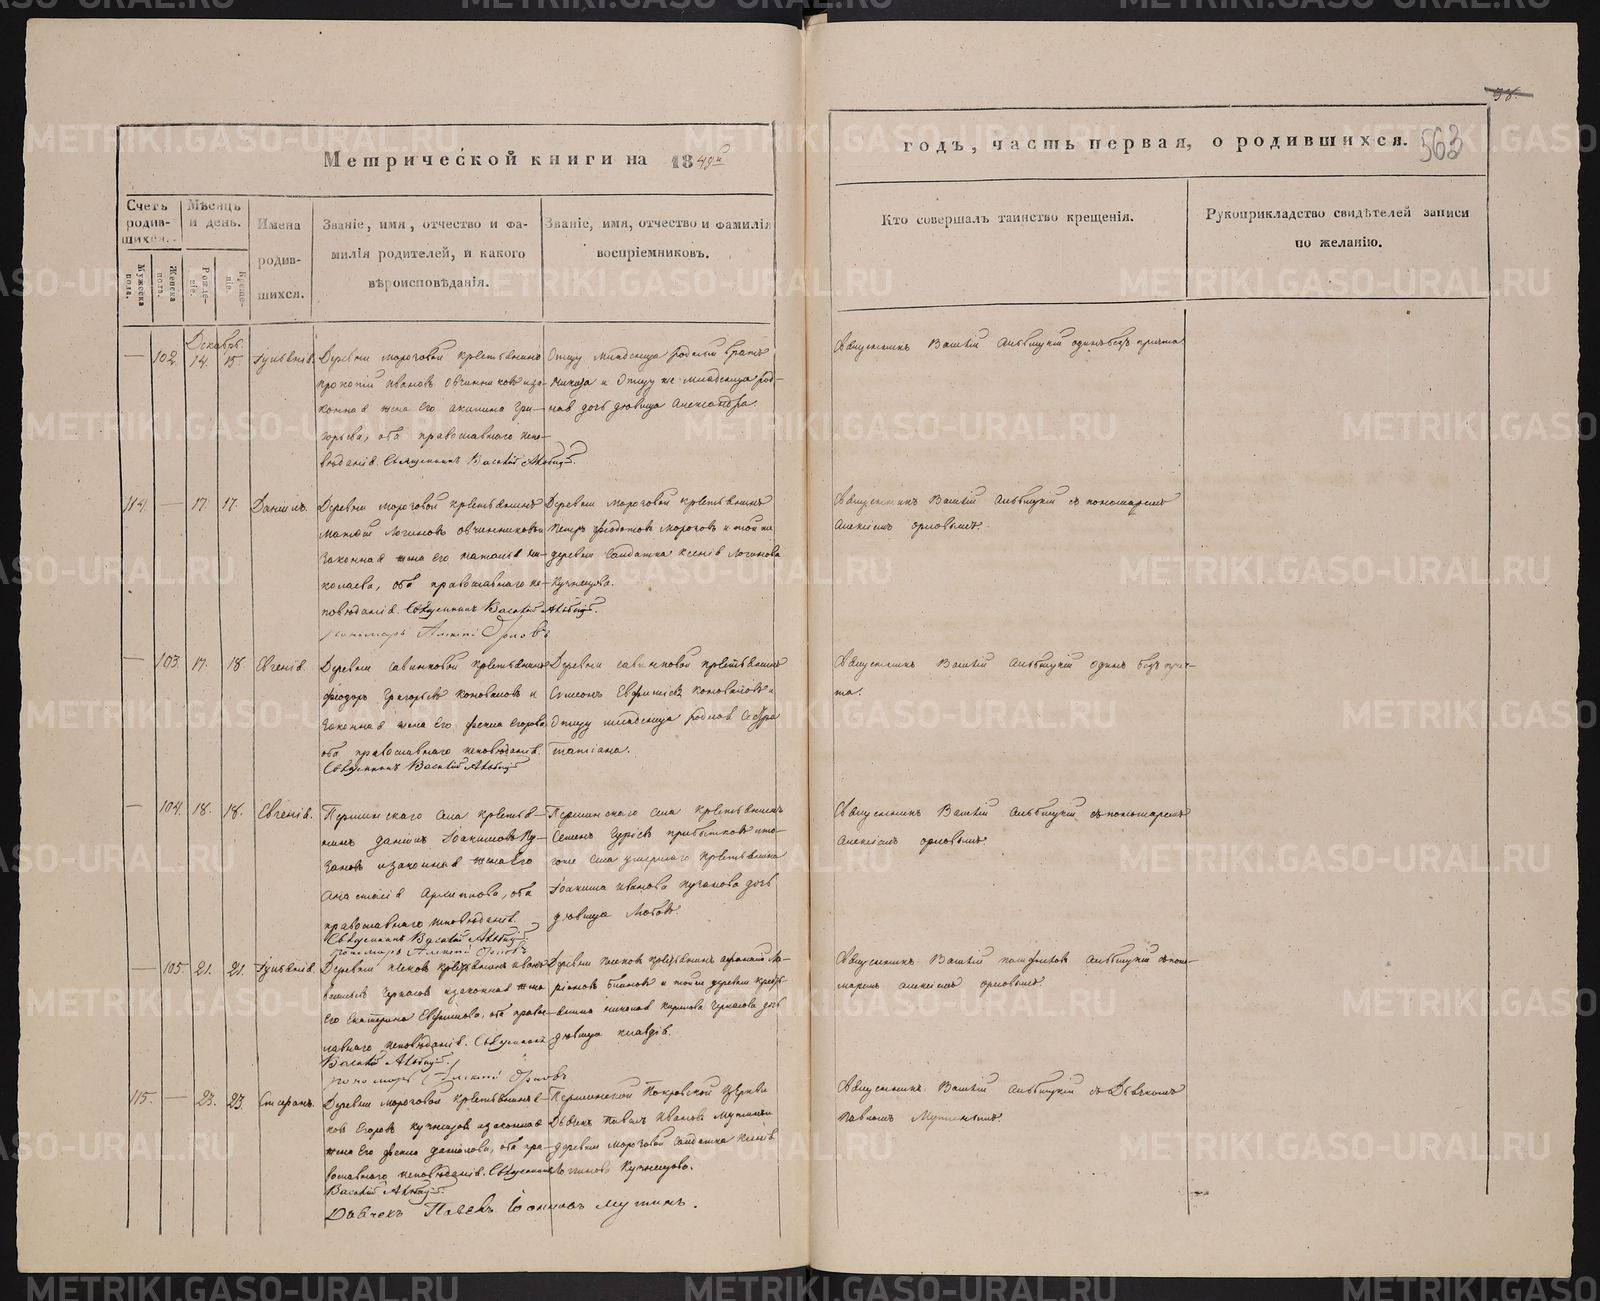 98.
563
Метрической книги на 1849й
годъ, часть первая, о родившихся.
Счетъ родившихся.
Мужеска пола.
Женска полъ.
Мѣсяцъ и день.
Рожденіе.
Крещеніе.
Имена родившихся.
Званіе, имя, отчество и фамилія родителей, и какого вѣроисповѣданія.
Званіе, имя, отчество и фамилія воспріемниковъ.
Кто совершалъ таинство крещенія.
Рукоприкладство свидѣтелей записи по желанію.
Декабрь
— 102. 14. 15. Іуліанія.
Деревни Мороговой крестьянинъ
Прокопій Ивановъ Овчинниковъ и за-
конная жена его Акилина Гри-
горьева, оба православнаго испо-
вѣданія. Священникъ Василій
Отцу младенца родный братъ
и Отцу же младенца род-
ная дочь дѣвица Александра.
Священникъ Василій одинъ безъ причта
114. — 17. 17. Даніилъ.
Деревни Мороговой крестьянинъ
Матѳій Логиновъ Овчинниковъ и
Законная жена его Наталія Ни-
колаева, оба православнаго ис-
повѣданія. Священникъ Василій
пономарь Алексій Орловъ
Деревни Мороговой крестьянинъ
Петръ Ѳеодотовъ Мороговъ и той же
деревни Солдатка Ксенія Логинова
Кузнецова.
Священникъ Василій съ пономаремъ
Алексіемъ Орловымъ.
— 103. 17. 18. Евгенія.
Деревни Савинковой крестьянинъ
Ѳеодоръ Григорьевъ Коноваловъ и
Законная жена его Ѳекла Егорова
оба православнаго исповѣданія.
Священникъ Василій
Деревни Савинковой крестьянинъ
Симеонъ Евфиміевъ Коноваловъ и
Отцу младенца родная Сестра
Татіана.
Священникъ Василій одинъ безъ прич-
та.
— 104. 18. 18. Евгенія.
Першинскаго Села крестья-
нинъ Даніилъ Іоакимовъ Пу-
гановъ и законная жена Его
Анастасія оба
православнаго исповѣданія.
Священникъ Василій
Пономарь Алексій Орловъ
Першинскаго Села крестьянинъ
Семенъ Гуріевъ Прибытковъ и то-
гоже Села умершаго крестьянина
Іоакима Иванова Пуганова дочь
дѣвица Любовь.
Священникъ Василій съ пономаремъ
Алексіемъ Орловымъ.
— 105. 21. 21. Іуліанія.
Деревни крестьянинъ Иванъ
Васильевъ Черкасовъ и законная жена
Его Екатерина Евфимова, оба право-
славнаго исповѣданія. Священникъ
Василій
пономарь Алексій Орловъ
Деревни крестьянинъ
и тойже деревни кресть-
янина Черкасова дочь
дѣвица Клавдія.
Священникъ Василій съ поно-
маремъ Алексіемъ Орловымъ.
115. — 23. 23. Стефанъ.
Деревни Мороговой крестьянинъ
Егоровъ Кузнецовъ и законная
жена Его Ѳекла Данилова, оба пра-
вославнаго исповѣданія. Священникъ
Василій
Дьячекъ Павелъ Іоанновъ Мутинъ.
Першинской Покровской Церкви
Дьячекъ Павелъ Ивановъ Мутинъ и
деревни Мороговой Солдатка Ксенія
Логинова Кузнецова.
Священникъ Василій съ Дьячкомъ
Павломъ Мутинымъ.
METRIKI.GASO-URAL.RU